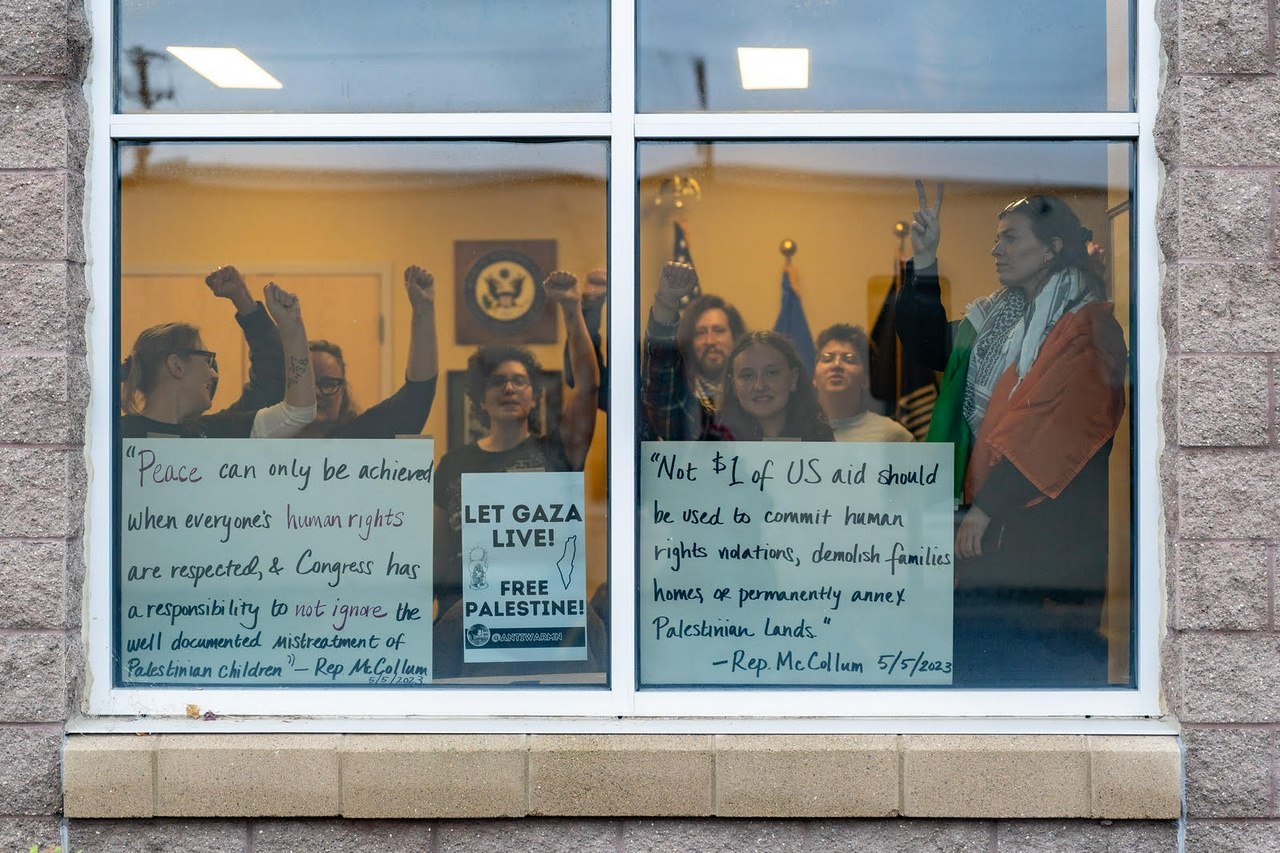 "Peace can only be achieved
when everyone's human rights
are respected, & Congress has
a responsibility to not ignore the
well documented mistreatment of
Palestinian children" — Rep McCollum
5/5/2023
LET GAZA
LIVE!
FREE
PALESTINE!
@ANTIWARMN
"Not $1 of US aid should
be used to commit human
rights violations, demolish families
homes, or permanently annex
Palestinian Lands."
—Rep. McCollum 5/5/2023